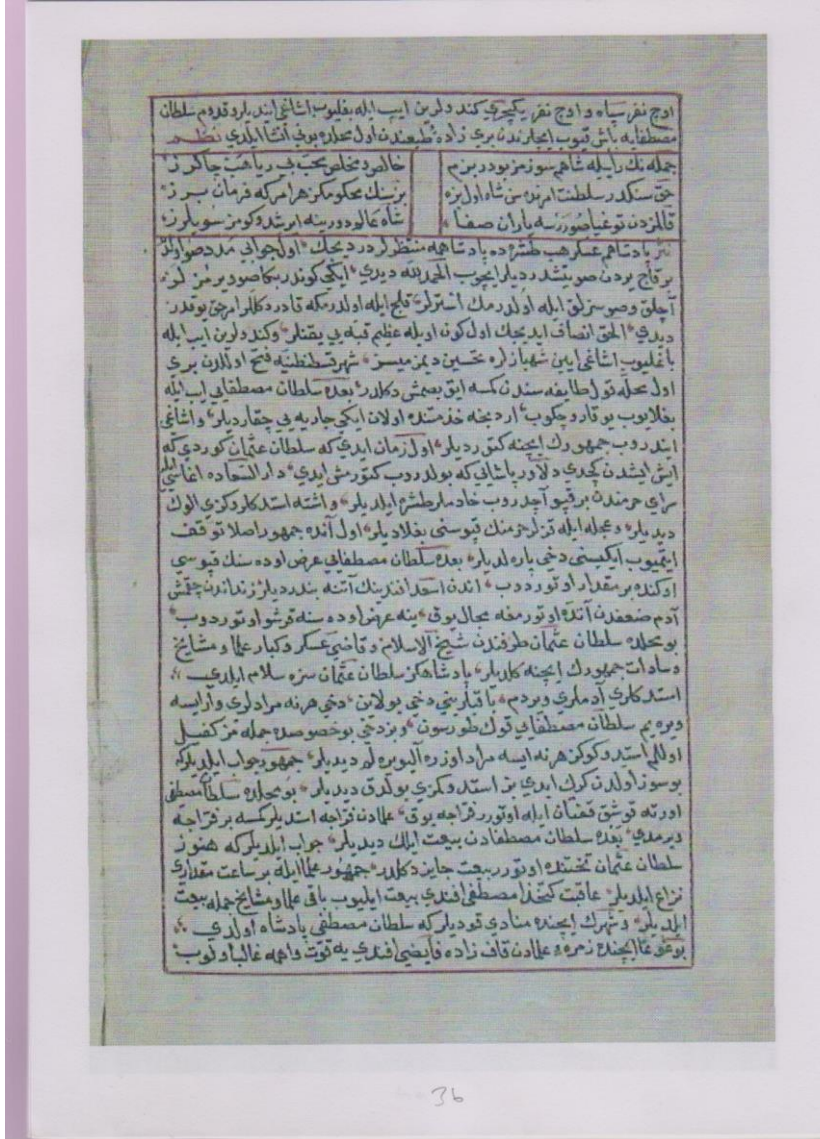 اوچ نفر سپاه و اوچ نفر یکیچری کندولرین ایپ ایله بغلیوب اشاغی ایندیلر و قدوم سلطان
مصطفایه باش قیوب ایچلرندن بری زاده طبعندن اول محلده بونی انشا ایلدی نظم
جمله نك رایله شاهم سوزمز بودر بزم
خالص و مخلص محب بی ریا هب چاکرز
حق سنکدر سلطنت امرنده سن شاه اول بزه
بز سنك محکومکز هر امرکه فرمان برز
قالمزدن توغیا صوررسه یاران صفا
شاه عالم دورینه ایرشدوکومز سویلرز
تیز پادشاهم عسکر هب طشره ده پادشاهمه منتظرلردر دیجك اول جوابی مدد صو اولدر
بر قاچ یردن صو یتشدردیلر ایچوب الحمد لله دیدی ایکی کوندر بکا صو ویرمزلر
آچلق و صوسزلق ایله اولدرمك استرلر قلیج ایله اولدرمکه قادر دکللر امر حق یوقدر
دیدی الحق انصاف ایدیجك اول کون اویله عظیم قبه یی یقنلر و کندولرین ایپ ایله
باغلیوب اشاغی اینن شهبازلره تحسین دیمز میسز شهر قسطنطنیه فتح اولالدن بری
اول محله قول طایفه سندن کسه ایق بصمش دکلدر بعده سلطان مصطفایی ایپ ایله
بغلایوب یوقارو چکوب اردنجه خدمتنده اولان ایکی جاریه یی چقاردیلر و اشاغی
ایندروب جمهورك ایچنه کتوردیلر اول زمان ایدی که سلطان عثمان کوردی که
ایش ایشدن کچدی دلاور پاشایی که بولدروب کتورمش ایدی دار السعاده اغاسی ایله
سرای حرمندن بر قپو آچدروب خادملر طشره ایلدیلر و اشته استدکلروکزی الوك
دیدیلر و عجله ایله تز لرحرمنك قپوسنی بغلادیلر اول آنده جمهور اصلا توقف
ایتمیوب ایکیسنی دخی پاره لدیلر بعده سلطان مصطفایی عرض اوده سنك قپوسی
اوکنده بر مقدار اوتوردوب اندن اسعد افندینك آتنه بندردیلر زنداندن چقمش
آدم ضعفدن آتده اوتورمغه مجال یوق ینه عرض اوده سنه قرشو اوتوردوب
بو محلده سلطان عثمان طرفندن شیخ الاسلام و قاضی عسکر و کبار علما و مشایخ
و سادات جمهورك ایچنه کلدیلر پادشاهکز سلطان عثمان سزه سلام ایلدی
استدکلری آدملری ویردم باقیلرینی دخی بولاین دخی هر نه مرادلری وار ایسه
ویره یم سلطان مصطفایی قوك طورسون و بز دخی بو خصوصده جمله مز کفیل
اوللم استدوکوکز هر نه ایسه مراد اوزره آلیویره لم دیدیلر جمهور جواب ایلدیلر که
بو سوز اولدن کرك ایدی بز استدوکمزی بولدق دیدیلر بو محلده سلطان مصطفی
اورته قوشق قفتان ایله اوتورر فراجه یوق علمادن فراجه استدیلر کسه بر فراجه
ویرمدی بعده سلطان مصطفادن بیعت ایلك دیدیلر جواب ایلدیلر که هنوز
سلطان عثمان تختنده اوتورر بیعت جایز دکلدر جمهور علما ایله بر ساعت مقداری
نزاع ایلدیلر عاقبت کتخدا مصطفی افندی بیعت ایلیوب باقی علما و مشایخ جمله بیعت
ایلدیلر و شهرك ایچنده منادی قودیلر که سلطان مصطفی پادشاه اولدی
بو غوغا ایچنده زمره علمادن قاف زاده فایضی افندی یه قوت واهمه غالب اولوب
36